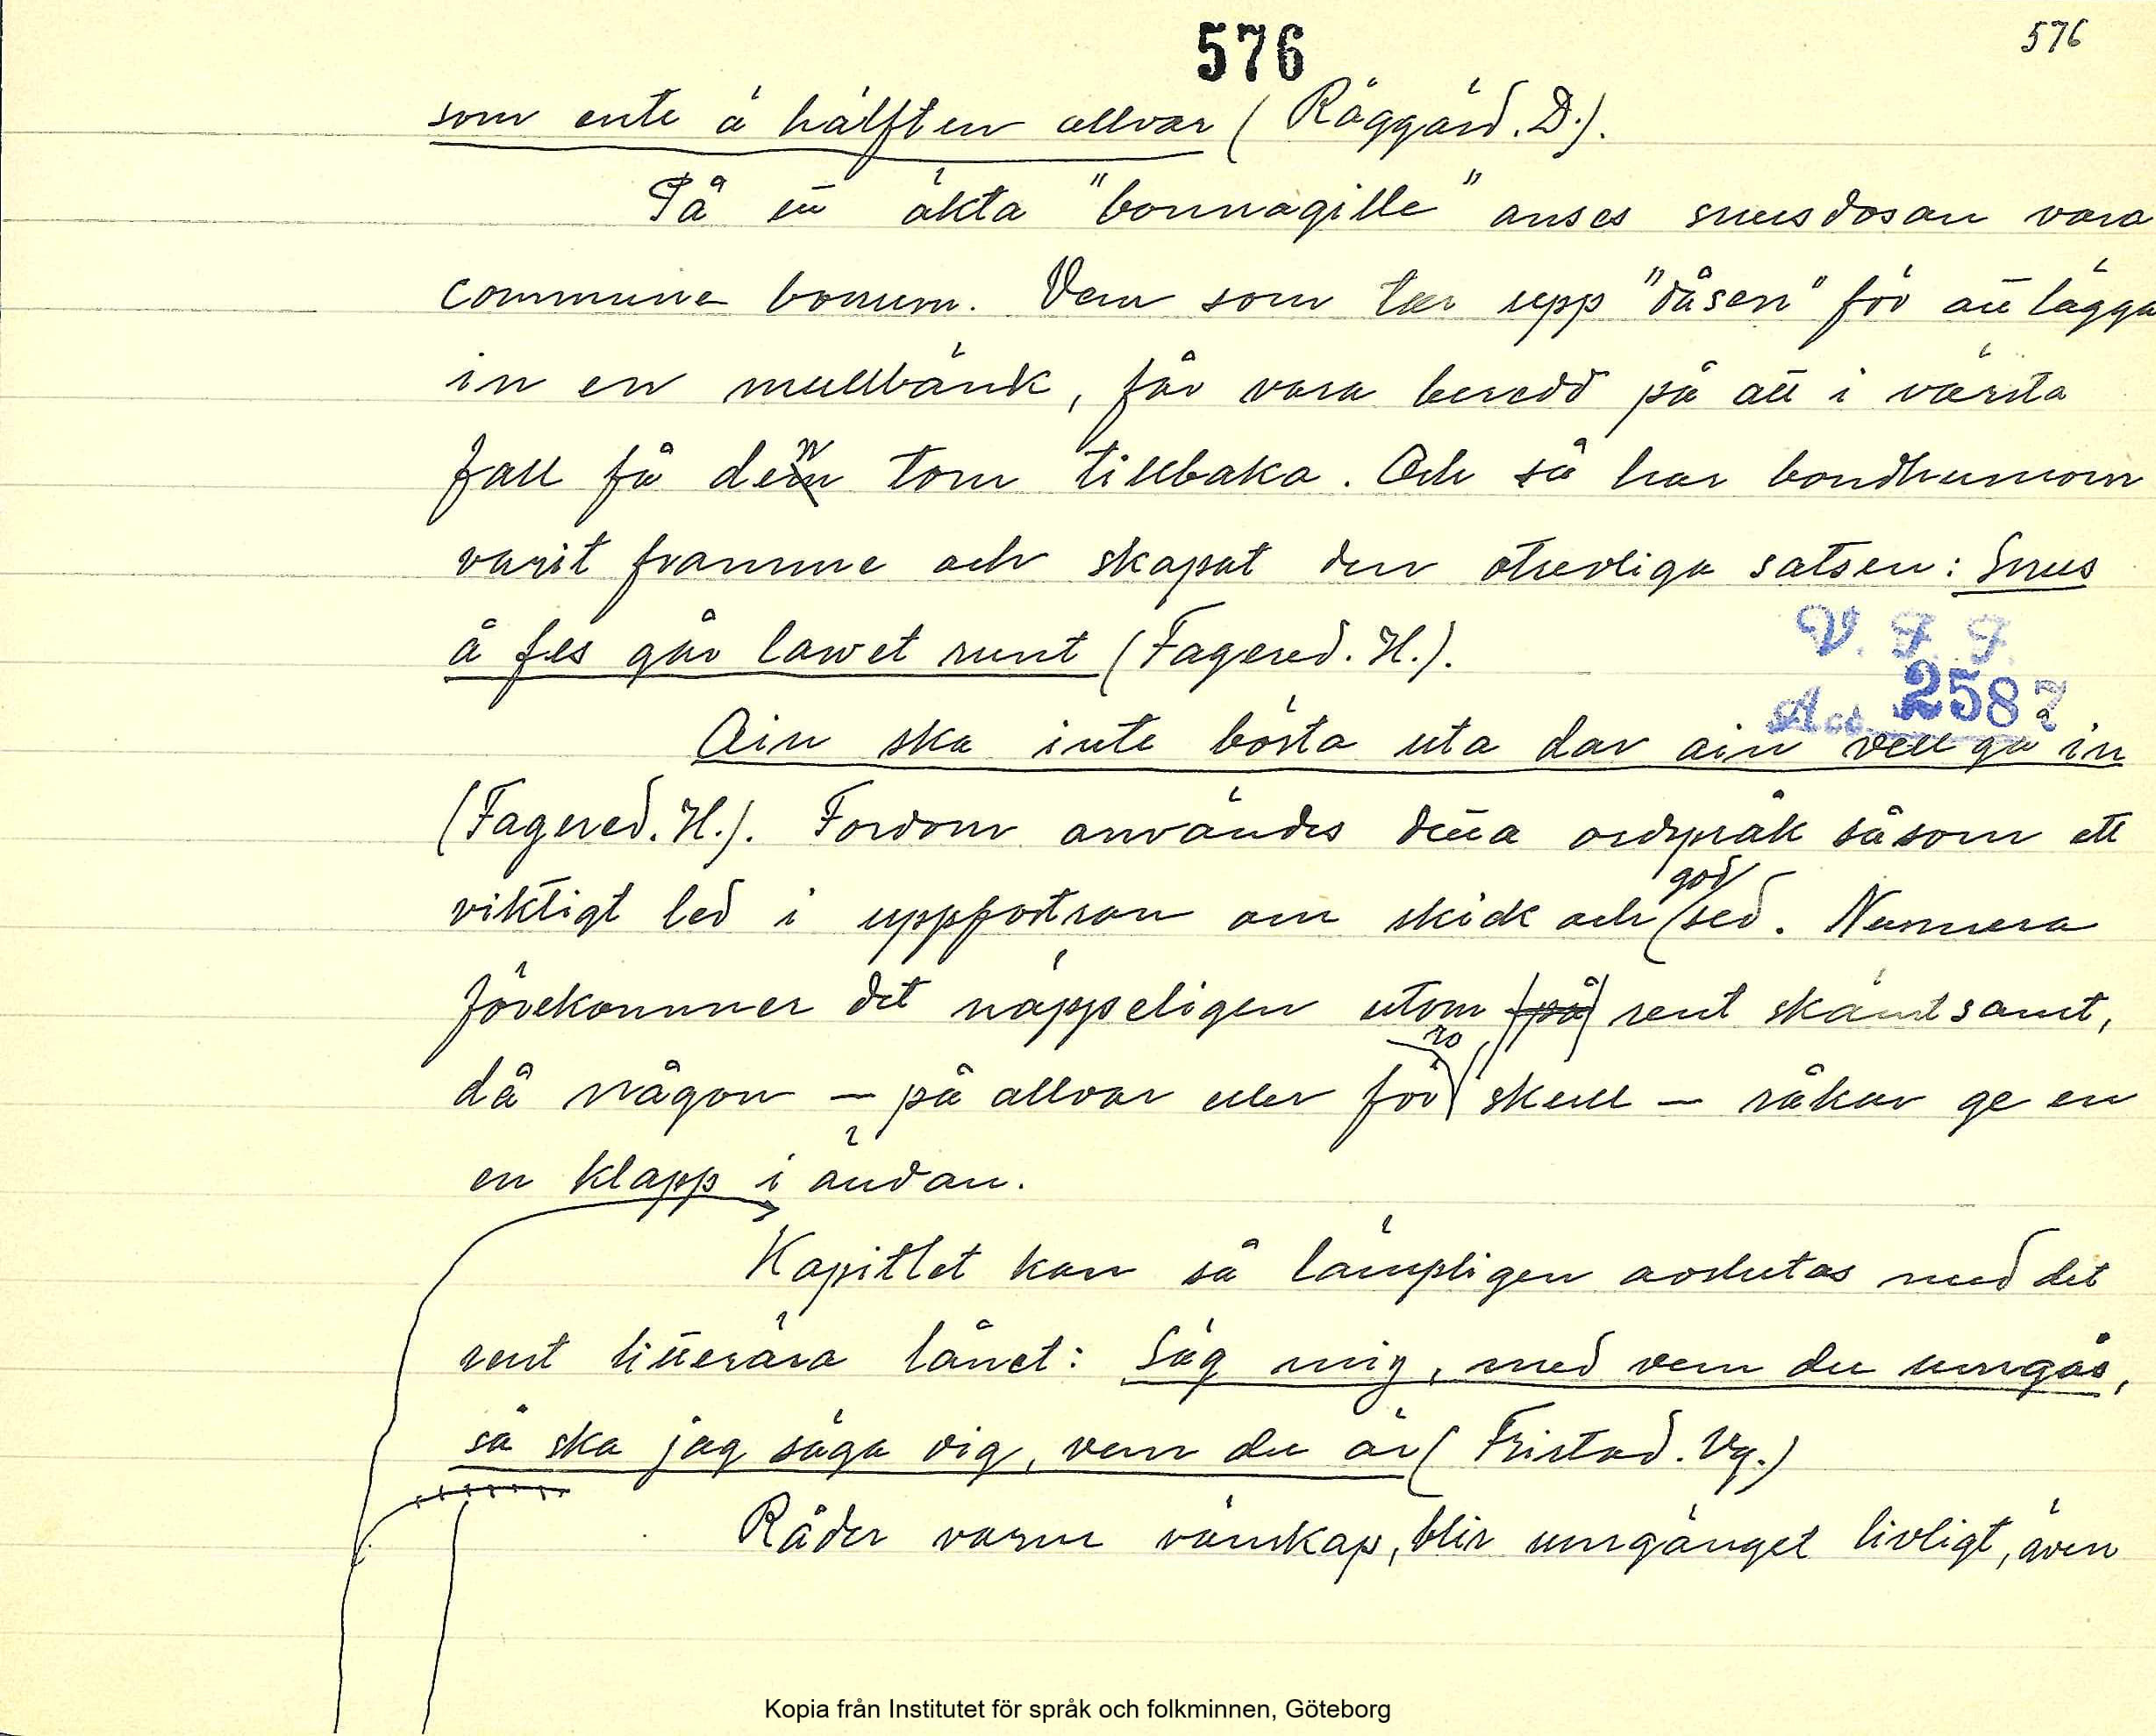 576
576
som ente ä hälften allvar (Räggärd. D.).
På ett äkta "bonnagille" anses snusdosan vara
commune bonum. Vem som tar upp "dåsen" för att lägga
in en mullbänk, får vara beredd på att i värsta
fall få den tom tillbaka. Och så har bondhumorn
varit framme och skapat den otrevliga satsen: Snus
å fes går lawet runt (Fagered. H.).
V. F. F.
Acc. 2587
Ain ska inte börta uta dar ain vell gå in
(Fagered. H.). Fordom användes detta ordspråk såsom ett
viktigt led i uppfostran om skick och god sed. Numera
förekommer det näppeligen utom på rent skämtsamt,
då någon – på allvar eller för ro skull – råkar ge en
en klapp i ändan.
Kapitlet kan så lämpligen avslutas med det
rent litterära lånet: Säg mig, med vem du umgås,
så ska jag säga dig, vem du är (Fristad. Vg.)
Råder varm vänskap, blir umgänget livligt, även
Kopia från Institutet för språk och folkminnen, Göteborg